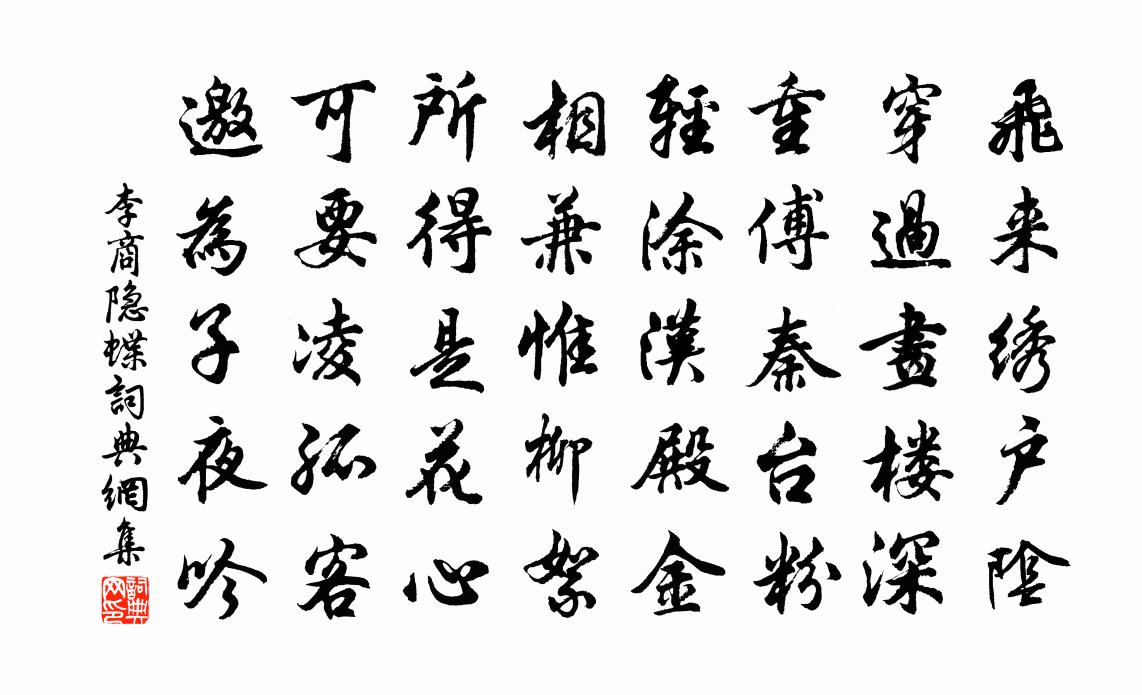 飛来绣户陰
穿過畫楼深
重傅秦台粉
輕涂漢殿金
相兼惟柳絮
所得是花心
可要凌孤客
邀為子夜吟
李商隐蝶詞典網集
詞典网印